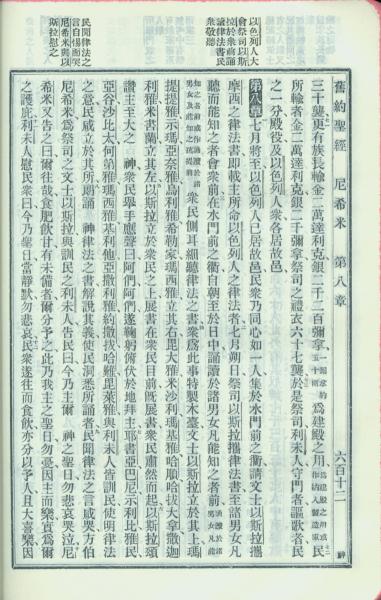 舊約聖經 尼希米 第八章 六百十二
三十襲更有族長輸金二萬達利克銀二千二百彌拿一彌拿約五十兩為建殿之用民
所輸者金二萬達利克銀二千彌拿祭司之禮衣六十七襲於是祭司利未人守門者謳歌者民
之一分殿役及以色列人眾各居故邑
以色列人大
會祭司以斯
拉於眾前誦
讀律法書民
眾敬聽
第八章七月將至以色列人已居故邑民眾乃同心如一人集於水門前之衢請文士以斯拉攜
摩西之律法書即載主所命以色列人之律法者七月朔日祭司以斯拉攜律法書至諸男女凡
聽而能知之者會眾前在水門前之衢自朝至於日中誦讀於諸男女凡能知之者前男女凡能
知之者前或作誦讀於諸男女及能知之輩前眾民側耳細聽律法之書眾為此事特製木臺文士以斯拉立於其上瑪
提提雅示瑪亞奈雅烏利雅希勒家瑪西雅立其右毘大雅米沙利瑪基雅哈順哈拔大拿撒迦
利雅米書蘭立其左以斯拉立於眾民之上展書在眾民目前既展書眾民肅然而起以斯拉頌
讚主至大之 神眾民舉手應聲曰阿們阿們遂鞠躬俯伏於地拜主耶書亞巴尼示利比雅民
亞谷沙比太何第雅瑪西雅基利他亞撒利雅約撒拔哈難毘萊雅與利未人皆訓民使明律法
之意民咸立於其所朗誦 神律法之書解說其義使民洞悉所誦者民聞律法之言咸哭方伯
民聞律法之
言自傷而哭
尼希米與以
斯拉慰之
尼希米為祭司之文士以斯拉與訓民之利未人告民曰今日乃主爾 神之聖日勿悲哀哭泣尼
希米又告之曰爾往哉食肥飲甘有未備者爾分予之此乃我主之聖日勿憂因主而樂實為爾
之護庇利未人慰民眾曰今乃聖日當靜默勿悲哀民眾遂往而食飲亦分以予人且大喜樂因